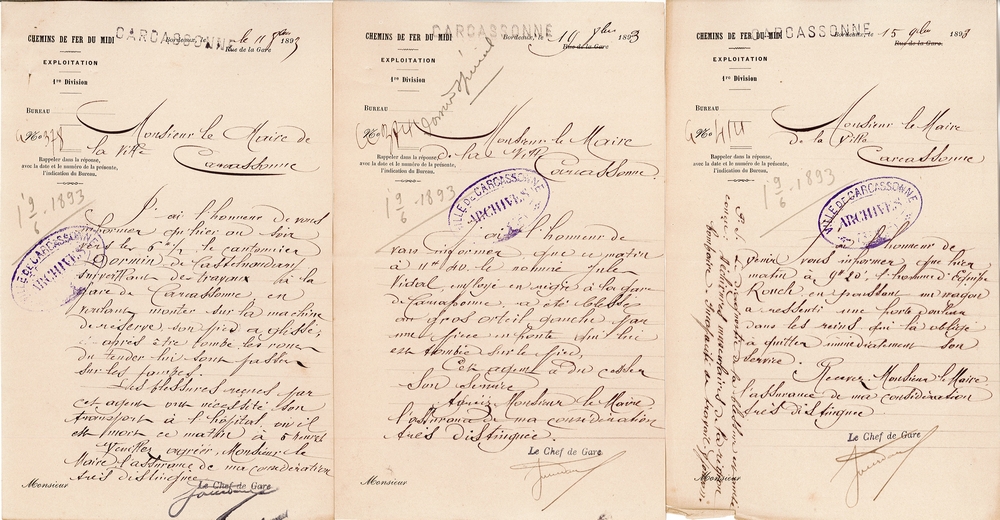 CHEMINS DE FER DU MIDI
CARCASSONNE
Bordeaux, le 11 1893
Rue de la Gare
EXPLOITATION
1re Division
BUREAU
No 378
Rappeler dans la réponse,
avec la date et le numéro de la présente,
l'indication du Bureau.
Monsieur le Maire de
la Ville
Carcassonne
1893
VILLE DE CARCASSONNE
ARCHIVES
J'ai l'honneur de vous
informer qu'hier au soir
vers les 6h le cantonnier
Dormin de Castelnaudary
surveillant des travaux à la
Gare de Carcassonne en
voulant monter sur la machine
de réserve, son pied a glissé,
après être tombé les roues
du tender lui sont passées
sur les jambes.
Les blessures reçues par
cet agent ont nécessité son
transport à l'hôpital, où il
est mort ce matin à 5 heures
Veuillez agréer, Monsieur le
Maire l'assurance de ma considération
très distinguée
Le Chef de Gare
Monsieur
CHEMINS DE FER DU MIDI
CARCASSONNE
Bordeaux, le 19 1893
Rue de la Gare
EXPLOITATION
1re Division
Dossier Spécial
BUREAU
No
Rappeler dans la réponse,
avec la date et le numéro de la présente,
l'indication du Bureau.
Monsieur le Maire
de la Ville
Carcassonne.
1893
VILLE DE CARCASSONNE
ARCHIVES
J'ai l'honneur de
vous informer que ce matin
à 11h 40, le nommé Jules
Vidal, employé en régie à la gare
de Carcassonne, a été blessé
au gros orteil gauche par
une pièce en fonte qui lui
est tombée sur le pied.
Cet agent a dû cesser
son service
Agréez Monsieur le Maire
l'assurance de ma considération
très distinguée.
Le Chef de Gare
Monsieur
CHEMINS DE FER DU MIDI
CARCASSONNE
Bordeaux, le 15 1893
Rue de la Gare.
EXPLOITATION
1re Division
BUREAU
No 414
Rappeler dans la réponse,
avec la date et le numéro de la présente,
l'indication du Bureau.
Monsieur le Maire
de la Ville
Carcassonne
1893
VILLE DE CARCASSONNE
ARCHIVES
J'ai l'honneur de
vous informer que hier
matin à 9h 20, l'homme d'équipe
Rouch, en poussant un wagon
a ressenti une forte douleur
dans les reins qui l'a obligé
à quitter immédiatement son
service.
Recevez Monsieur le Maire
l'assurance de ma considération
très distinguée
Le Chef de Gare
Monsieur